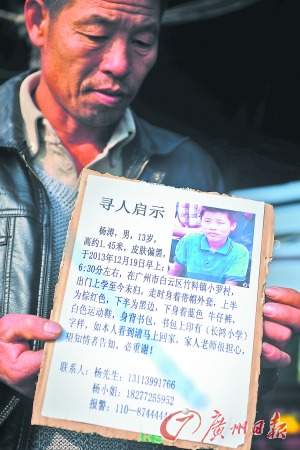 寻人启示
杨涛，男，13岁，
高约1.45米，皮肤偏黑，
于2013年12月19日早上：
6:30分左右，在广州市白云区竹料镇小罗村，
出门上学至今未归，走时身着带帽外套，上半
为棕红色，下半为黑边，下身着蓝色 牛仔裤，
白色运动鞋，身背书包，书包上印有（长鸿小学）
字样，如本人看到请马上回家，家人老师很担心，
望知情者告知，必重谢！
联系人：杨先生：13113991766
杨小姐：18277255952
报警：110—8744444
广州日报